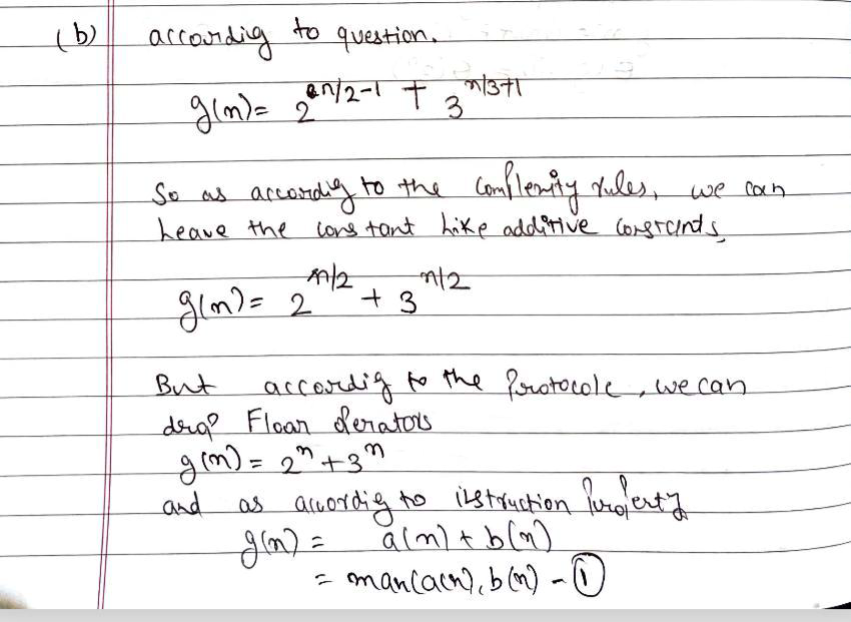 (b) according to question.
g(n)= 2^{n/2-1} + 3^{n/3+1}
So as accordig to the Complexity rules, we can
Leave the constant Like additive constraints,
g(n)= 2^{n/2} + 3^{n/2}
But accordig to the Protocole, we can
drop Floar operators
g(n) = 2^n + 3^n
and as accordig to instruction Property
g(n) = a(n) + b(n)
= man(a(n), b(n) - ①